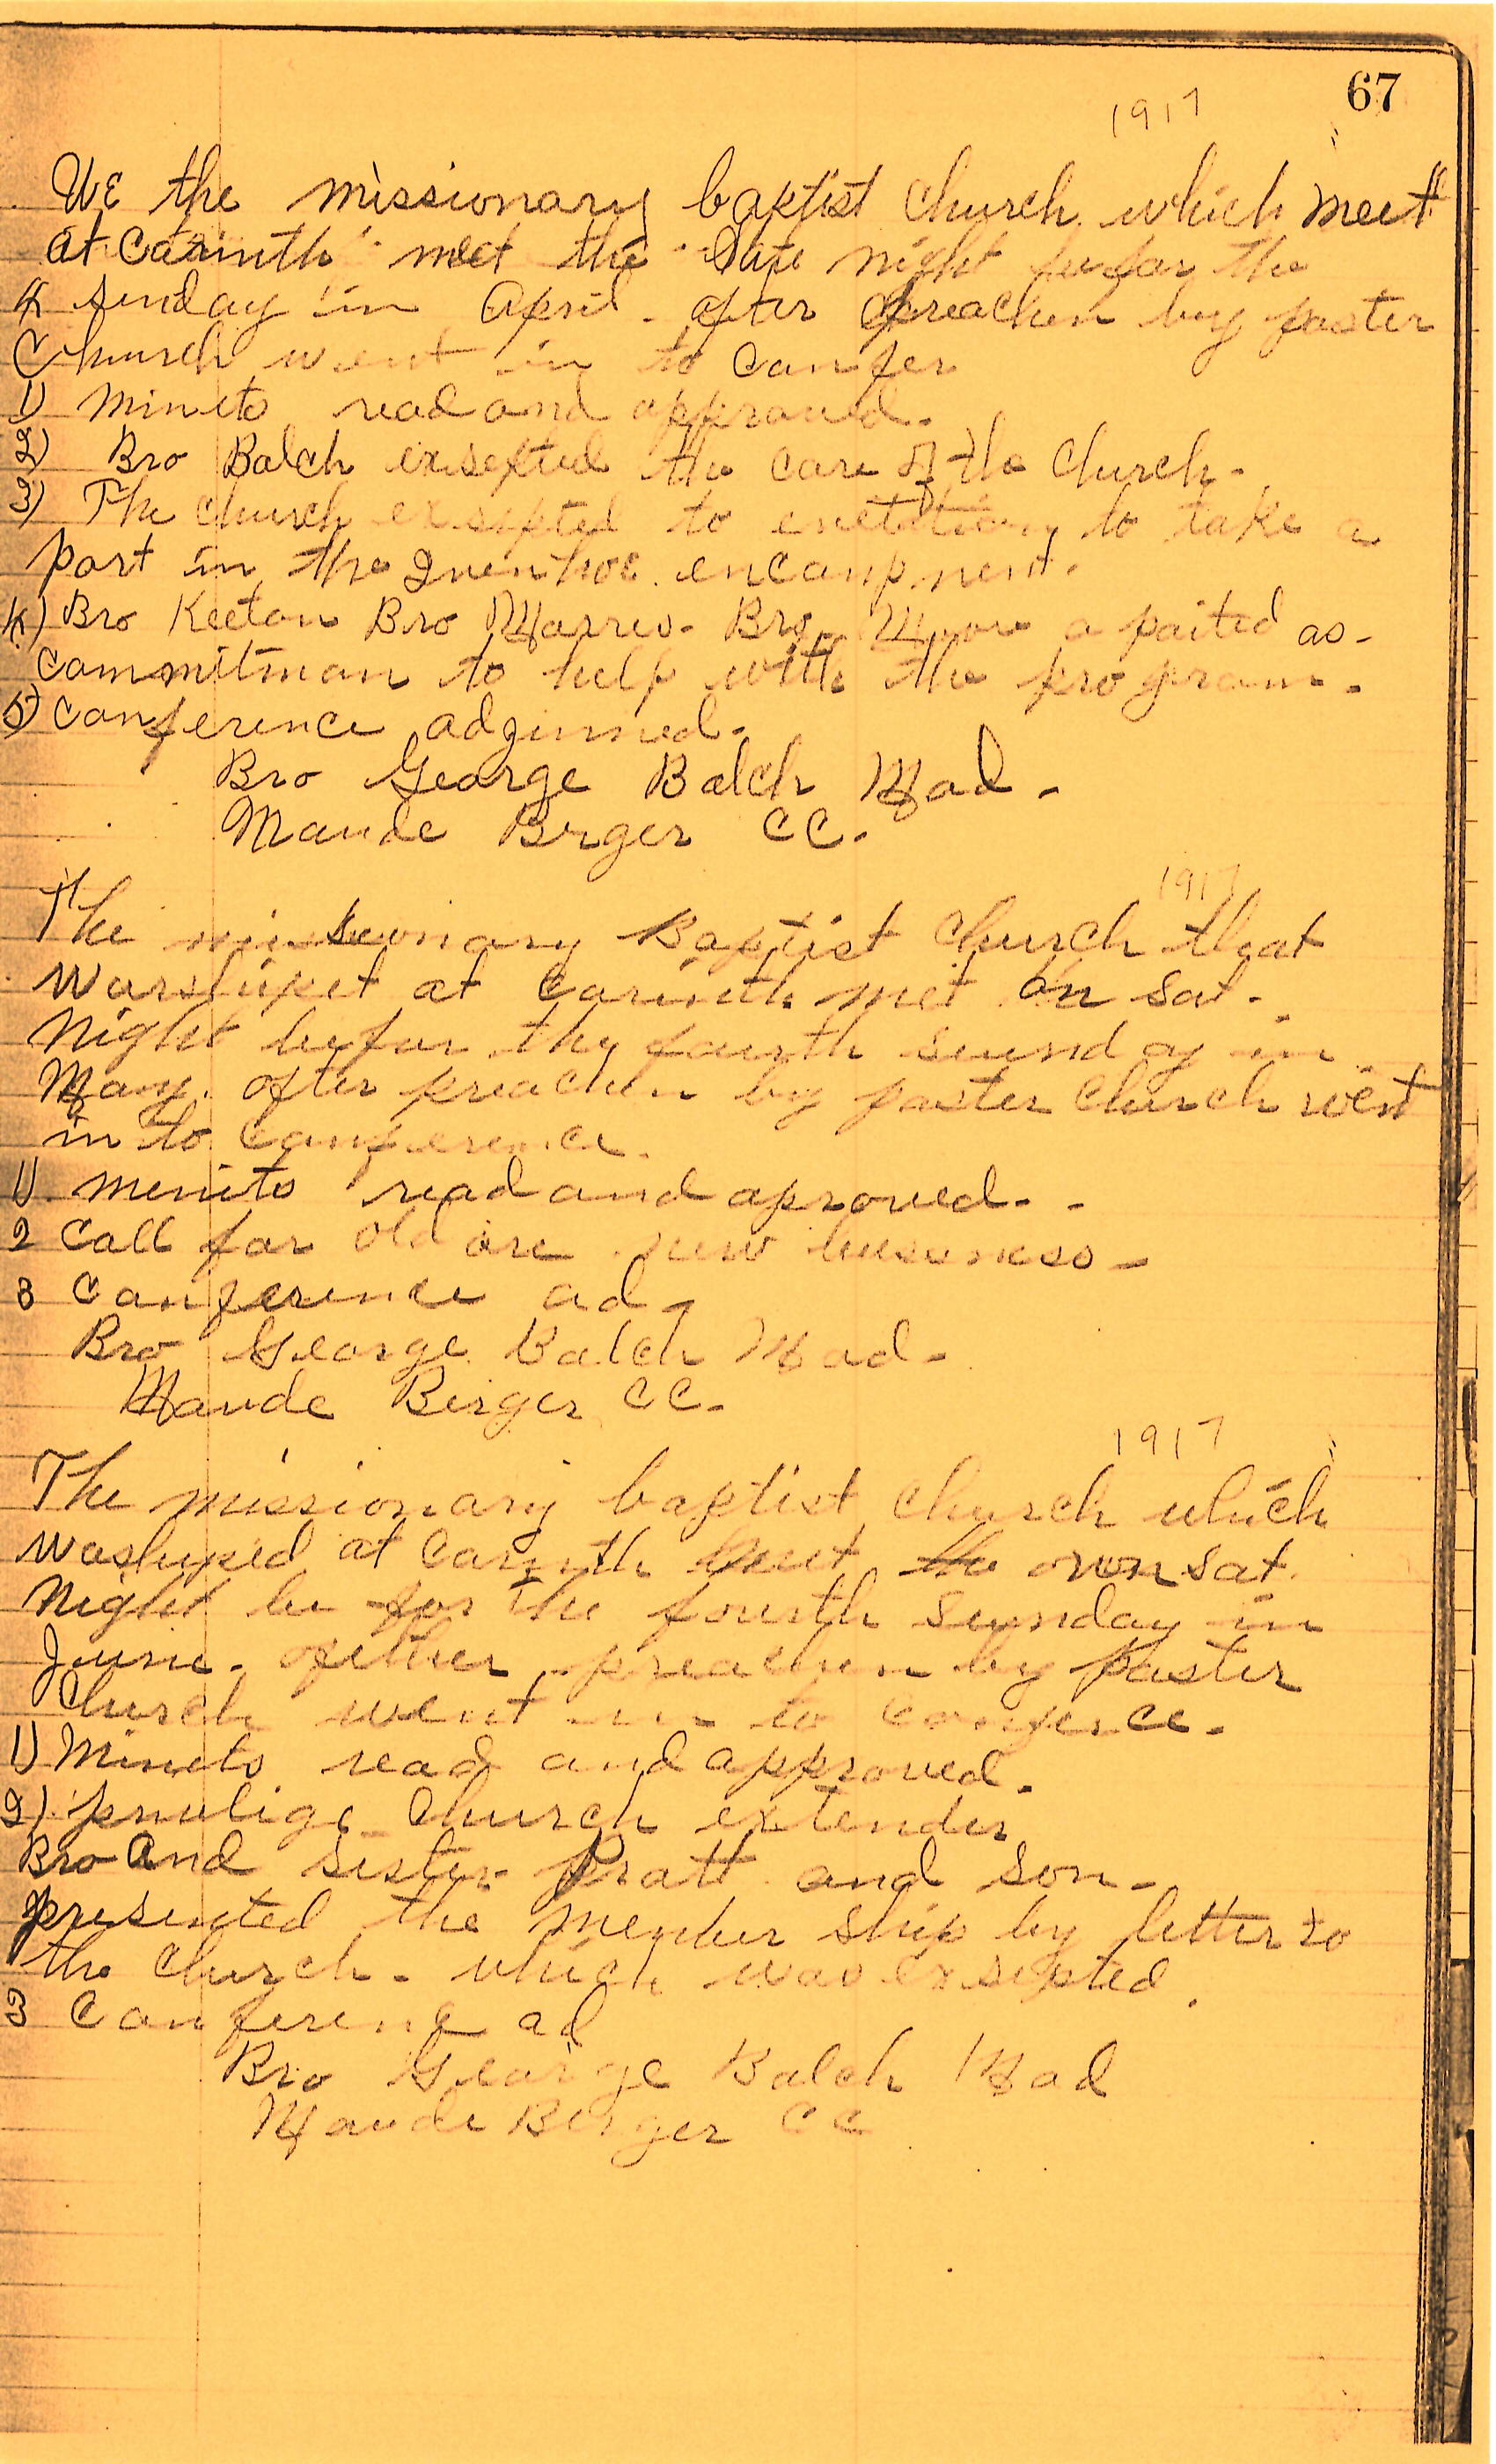 67
1917
We the missionary baptist church which meet
at Carinth met the Sate night befor the
4 sunday in April. after preachen by paster
Church went in to Confer
1) Minets read and approved.
2) Bro Balch exsepted the care of the Church.
3) The church exsepted to to take a
part in the encampment.
4) Bro Keeton Bro Bro a paited as-
committman to help with the program.
5) Conference adjurned.
Bro George Balch Mod.
Maude Berger CC.
1917
The missionary Baptist church that
Warshipet at Carinth met on Sat.
Night befur the fourth sunday in
May. after preachen by paster Church went
in to Conference.
1) menets read and aproved.
2 Call for old are new buseness
3 Conference ad.
Bro George Balch Mod.
Maude Berger CC.
1917
The missionary baptist church which
washiped at Carinth the on Sat.
Night be for the fourth Sunday in
June. preachen by paster
Church went in to Confence.
1) Minets read and approved.
2) Church extender
Bro and Sister Pratt and son
presented the member ship by letter to
the Church. which was exsepted.
3 Conferenc ad
Bro George Balch Mod
Maude Berger CC